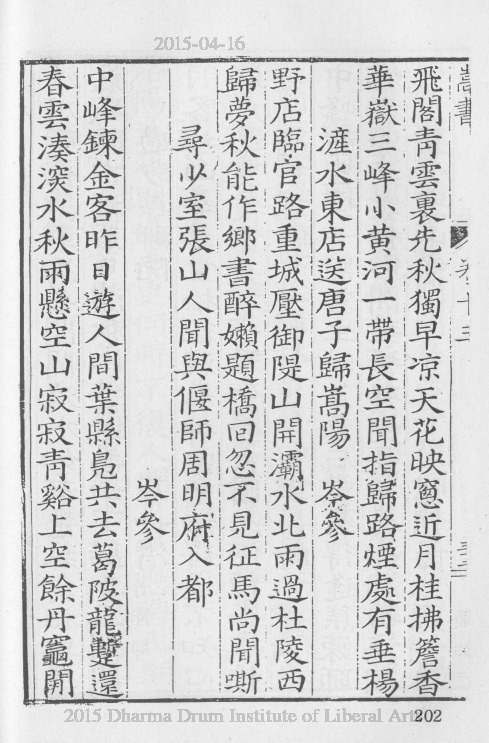 2015-04-16
嵩書
卷十三
飛閣青雲裏先秋獨早凉天花映窻近月桂拂簷香
華嶽三峰小黄河一帶長空聞指歸路煙處有垂楊
滻水東店送唐子歸嵩陽 岑參
野店臨官路重城壓御隄山開灞水北雨過杜陵西
歸夢秋能作鄉書醉嬾題橋回忽不見征馬尚聞嘶
尋少室張山人聞與偃師周明府入都
岑參
中峰鍊金客昨日遊人間葉縣鳧共去葛陂龍蹔還
春雲湊深水秋雨懸空山寂寂青谿上空餘丹竈閒
2015 Dharma Drum Institute of Liberal Arts
202